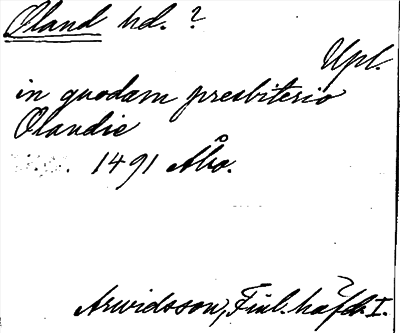 Öland hd. ?
Upl.
in quodam presbiterio
Olandie
1491 Åbo.
Arwidsson, Finl. häfd. I.